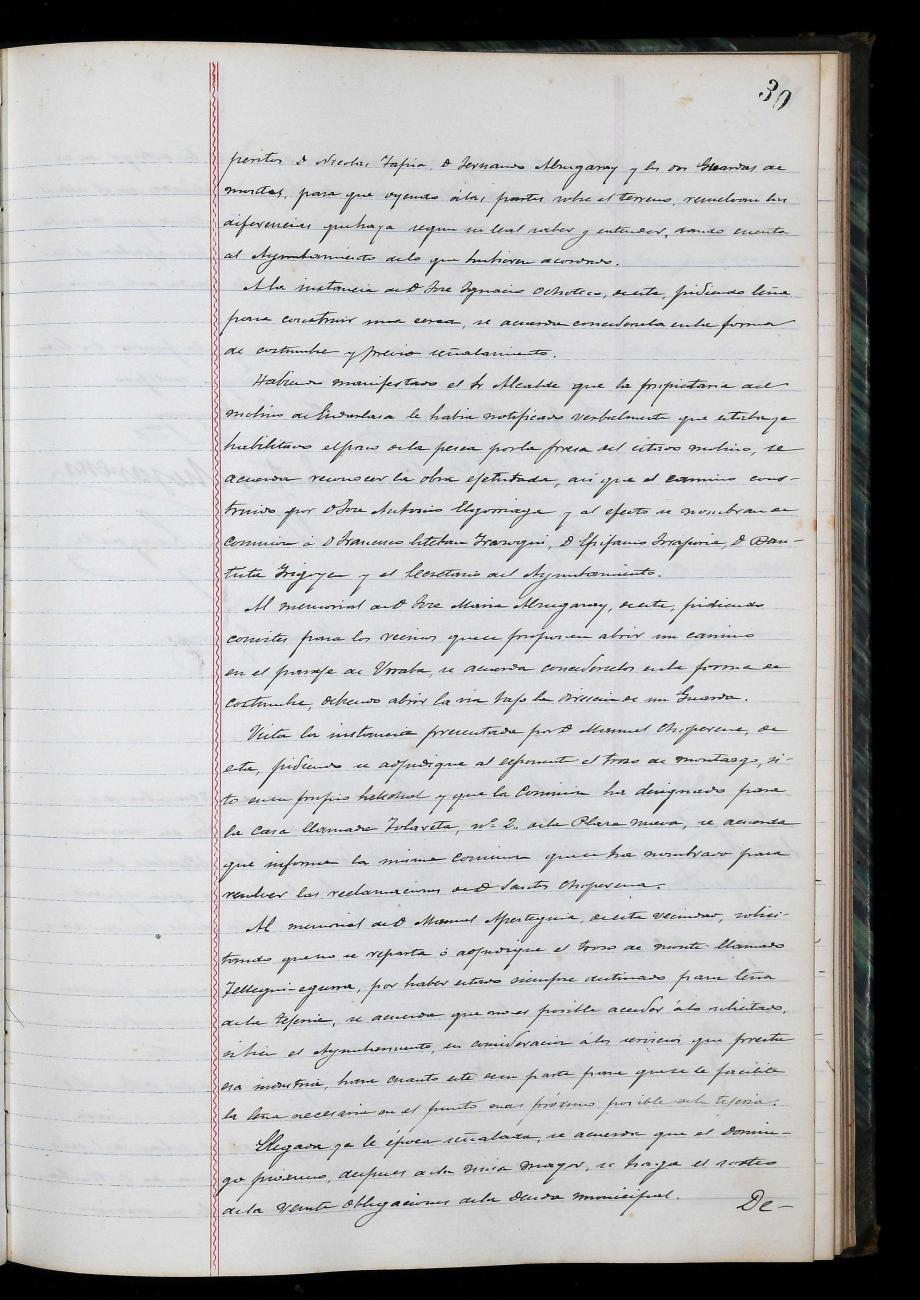 30
peritos D. Nicolas Tapia, D. Fernando Alzugaray y los dos Guardas de
montes, para que oyendo á las partes sobre el terreno, resuelvan las
diferencias que haya segun su leal saber y entender, dando cuenta
al Ayuntamiento de lo que hubieren acordado.
A la instancia de D. Jose Ignacio Ochoteco, de esta, pidiendo leña
para construir una cerca, se acuerda concederla en la forma
de costumbre y previo señalamiento.
Habiendo manifestado el Sr. Alcalde que la propietaria del
molino de Endarlasa le habia notificado verbalmente que estaba ya
habilitado el paso de la pesca por la presa del citado molino, se
acuerda reconocer la obra ejecutada, asi que el camino cons-
truido por D. Jose Antonio Elgorriaga y al efecto se nombran en
comision á D. Francisco Esteban Irazoqui, D. Epifanio, D. Bau-
tista Irigoyen y el Secretario del Ayuntamiento.
Al memorial de D. Jose Maria Alzugaray, de esta, pidiendo
convites para los vecinos que se proponen abrir un camino
en el paraje de, se acuerda concederlos en la forma de
costumbre, debiendo abrir la via bajo la direccion de un Guarda.
Vista la instancia presentada por D. Manuel Choperena, de
esta, pidiendo se adjudique al esponente el trozo de montazgo, si-
to en su propio helechal y que la Comision ha designado para
la Casa llamada Tolareta, nº 2, de la Plaza nueva, se acuerda
que informe la misma Comision que se ha nombrado para
resolver las reclamaciones de D. Santos Choperena.
Al memorial de D. Manuel Apesteguia, de esta vecindad, solici-
tando que no se reparta ó adjudique el trozo de monte llamado
Tellegui-eguna, por haber estado siempre destinado para leña
de la tejeria, se acuerda que no es posible acceder á lo solicitado,
si bien el Ayuntamiento, en consideracion á los servicios que presta
esa industria, hará cuanto esté de su parte para que se le facilite
la leña necesaria en el punto mas próximo posible de la tejeria.
Llegada ya la época señalada, se acuerda que el Domin-
go próximo, despues de la misa mayor, se haga el sorteo
de la veinte obligaciones de la Deuda municipal.
De-